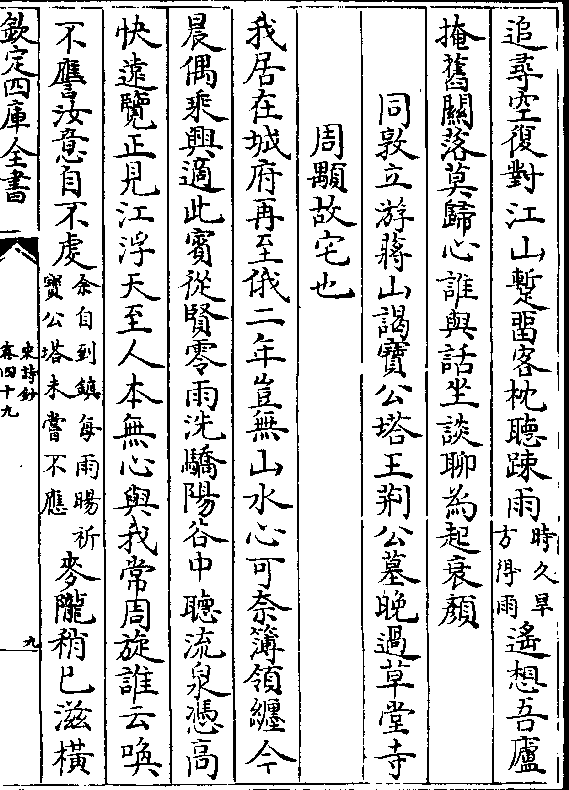 追尋空復對江山蹔畱客枕聽踈雨時久旱方得雨遙想吾廬
掩舊關落莫歸心誰與話坐談聊為起衰顏
同敦立游蔣山謁寶公塔王荆公墓晚過草堂寺
周顒故宅也
我居在城府再至俄二年豈無山水心可奈簿領纏今
晨偶乘興適此賓從賢零雨洗驕陽谷中聽流泉憑高
快遠覽正見江浮天至人本無心與我常周旋誰云喚
不譍汝意自不虔余自到鎮每雨暘祈寶公塔未嘗不應麥隴稍已滋橫
欽定四庫全書
宋詩鈔
卷四十九
九